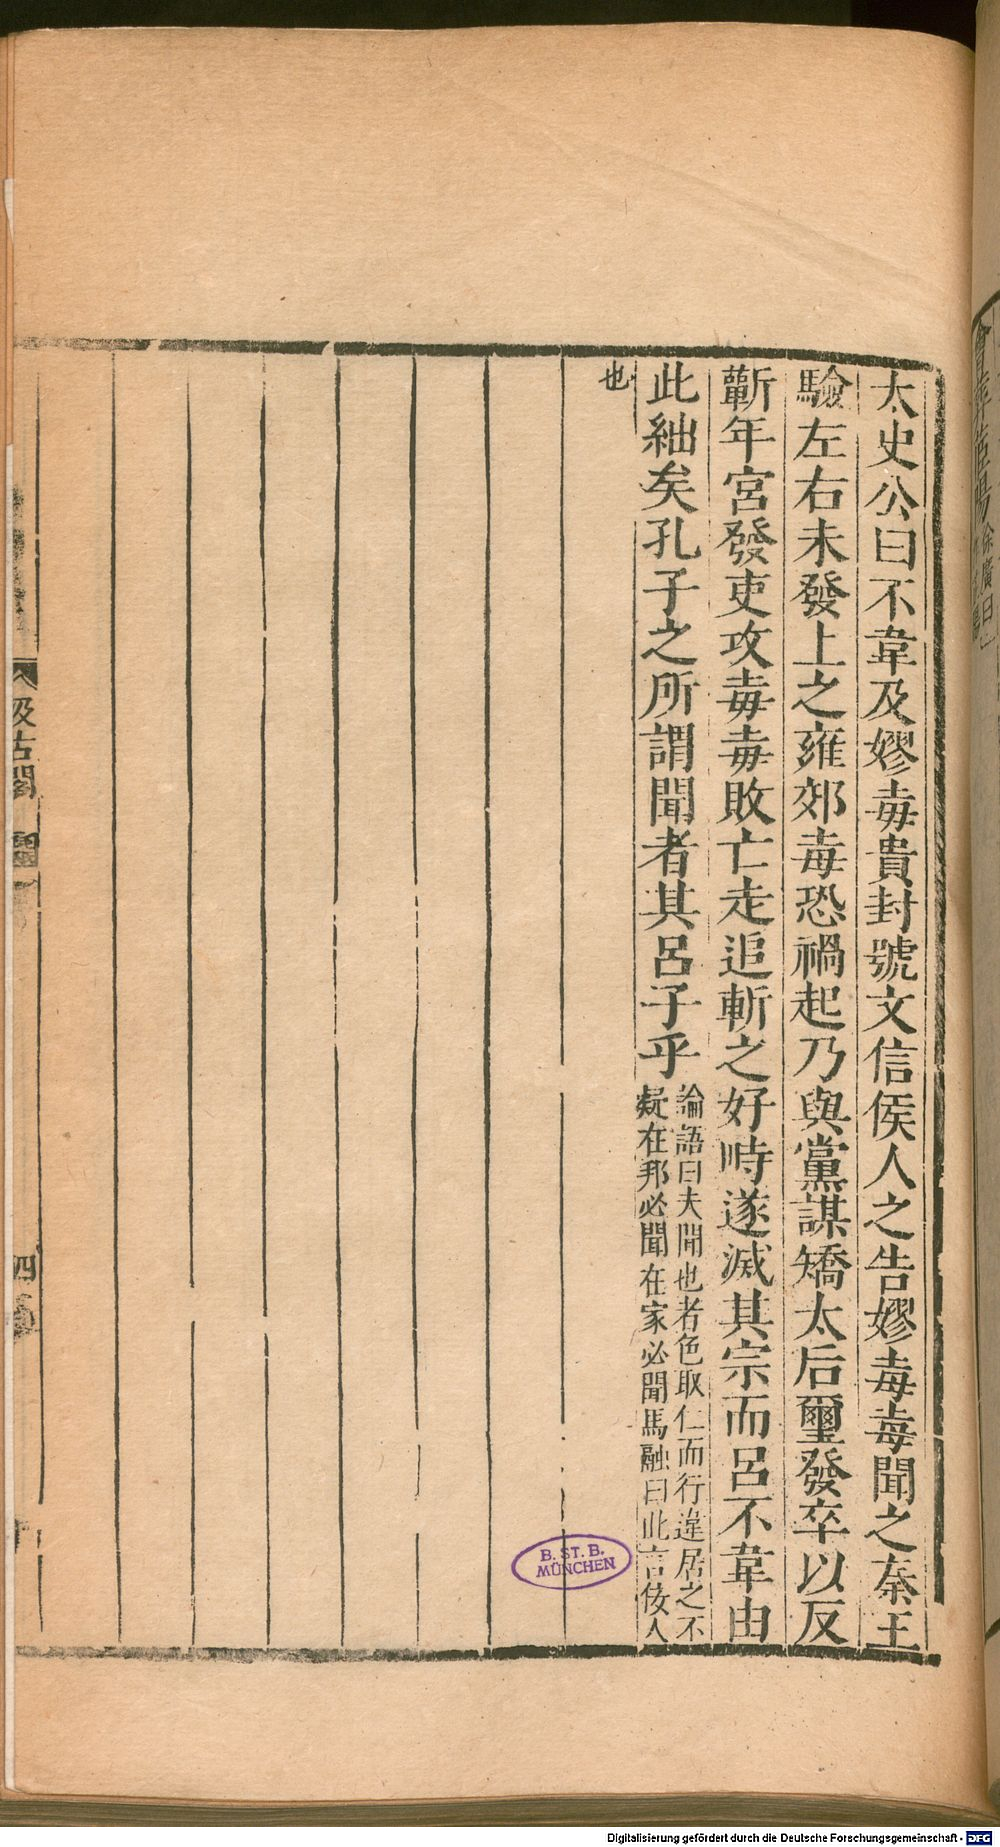 太史公曰不韋及嫪毐貴封號文信侯人之告嫪毐毐聞之秦王
驗左右未發上之雍郊毐恐禍起乃與黨謀矯太后璽發卒以反
蘄年宮發吏攻毐毐敗亡走追斬之好畤遂滅其宗而呂不韋由
此絀矣孔子之所謂聞者其呂子乎
論語曰夫聞也者色取仁而行違居之不
疑在邦必聞在家必聞馬融曰此言佞人
也
汲古閣
四
徐廣曰
B. ST. B.
MÜNCHEN
Digitalisierung gefördert durch die Deutsche Forschungsgemeinschaft - DFG